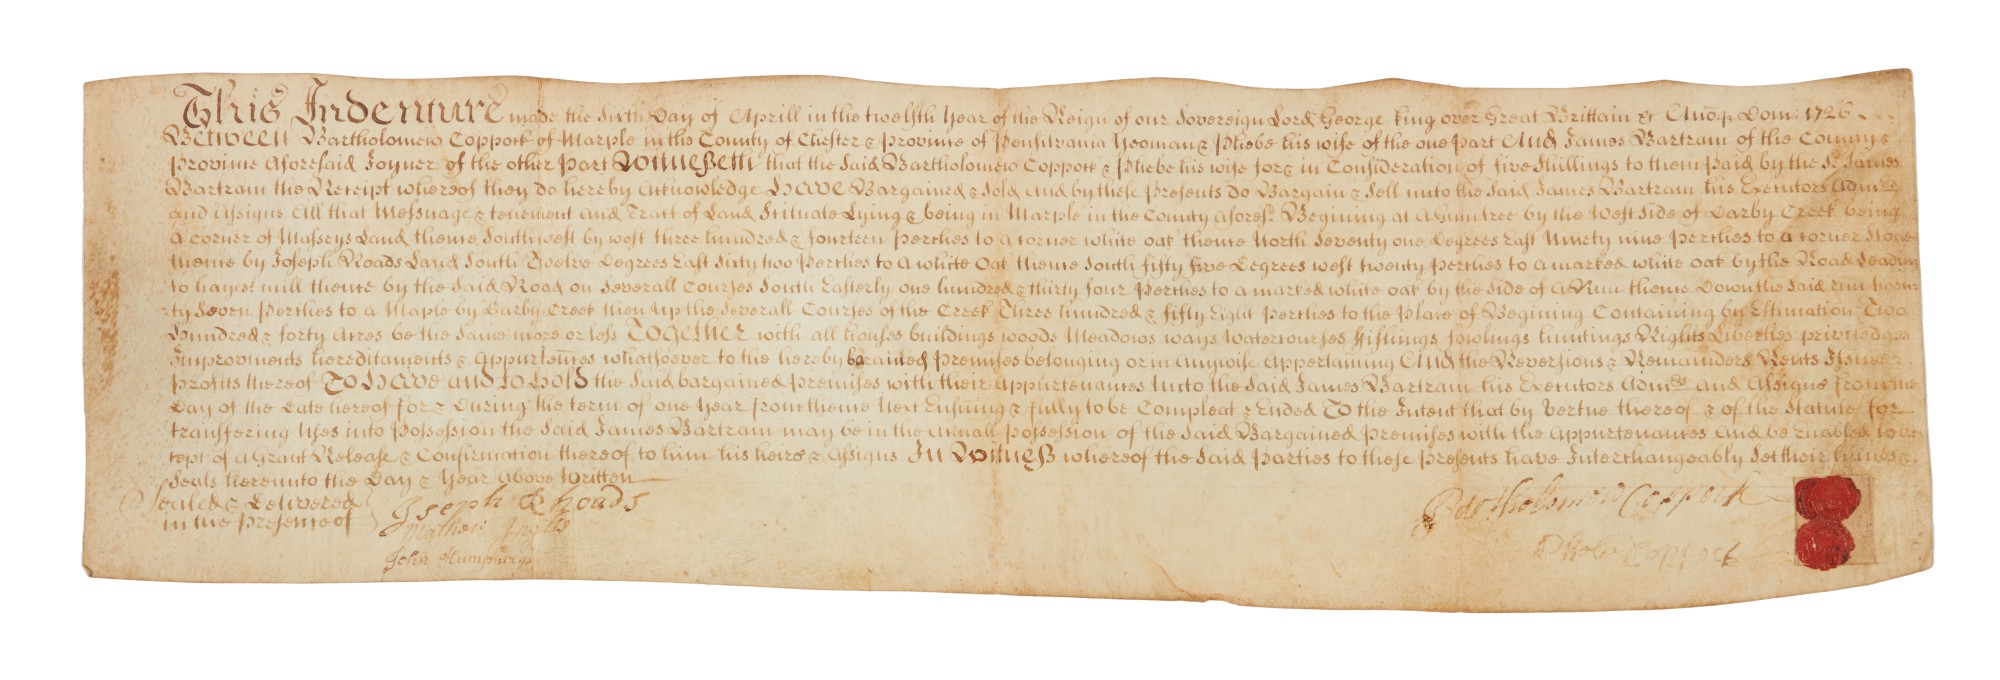 This Indenture made the Sixth Day of Aprill in the twelfth Year of the Reign of our Sovereign Lord George King over Great Brittain &c Annoq. Dom: 1726
Between Bartholomew Coppock of Marple in the County of Chester & Province of Pensilvania Yeoman & Phebe his wife of the one part And James Bartram of the County &
Province Aforesaid Joyner of the other part Witnesseth that the Said Bartholomew Coppock & Phebe his wife for & in Consideration of five Shillings to them Paid by the Sd. James
Bartram the Receipt whereof they do hereby Acknowledge Have Bargained & Sold And by these Presents Do Bargain & Sell unto the Said James Bartram his Executors Admrs.
and Assigns All that Messuage & tenement and Tract of Land Scituate Lying & being in Marple in the County Aforesd. Begining at A Gumtree by the West Side of Darby Creek being
A corner of Masseys Land thence Southwest by west three hundred & fourteen Perches to a corner white oak thence North Seventy one Degrees East Ninety nine perches to a corner Stone
thence by Joseph Roads Land South Twelve Degrees East Sixty two Perches to A white Oak thence South fifty five Degrees west twenty Perches to A marked white oak by the Road Leading
to hayes! mill thence by the Said Road on Severall Courses South Easterly one hundred & thirty four Perches to a marked white oak by the Side of A Run thence Down the Said run
ty Seven Perches to a Maple by Darby Creek then Up the Severall Courses of the Creek Three hundred & fifty Eight perches to the Place of Begining Containing by Estimation Two
hundred & forty Acres be the Same more or less Together with all houses buildings woods Meadows ways Watercourses fishings fowlings huntings Rights Liberties priviledges
Improvments hereditaments & Appurtences whatsoever to the hereby bargained Premises belonging or in Anywise Appertaining And the Reversions & Remainders Rents Issues &
Profits thereof To Have and to hold the Said bargained Premises with their Appurtenances Unto the Said James Bartram his Executors Admrs. and Assigns from the
Day of the Date hereof for & During the term of one Year from thence Next Ensuing & fully to be Compleat & Ended To the Intent that by Vertue thereof & of the Statute for
transfering Uses into Possession the Said James Bartram may be in the Actuall Possession of the Said Bargained Premises with the Appurtenances And be Enabled to Ac
cept of A Grant Release & Confirmation thereof to him his heirs & Assigns In Witness whereof the Said Parties to these Presents have Interchangeably Set their hands &
Seals hereunto the Day & Year Above Written
Sealed & Delivered
in the Presence of
Joseph Rhoads
Mathew
John Humphreys
Bartholomew Coppock
Phebe Coppock